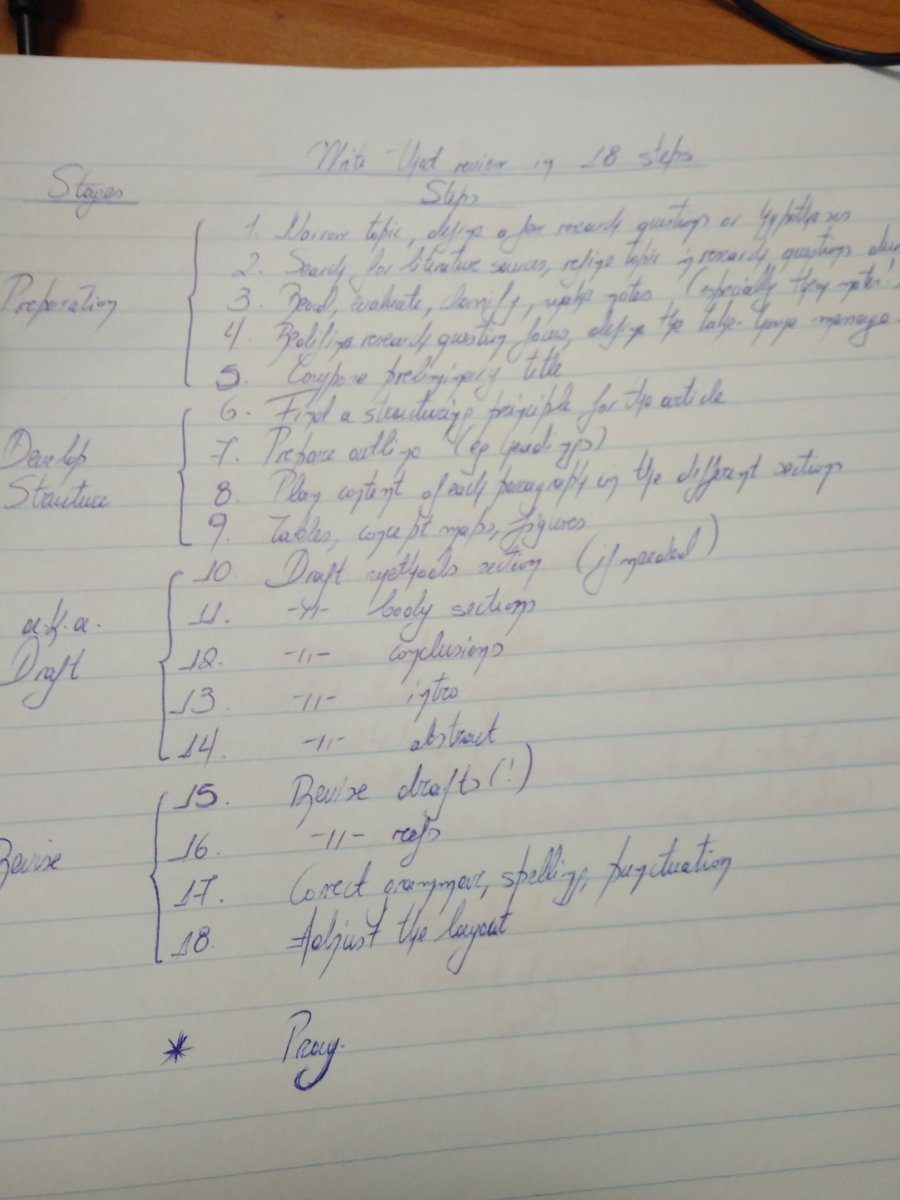 Write that review in 18 steps
Stages Steps
1. Narrow topic, define a few research questions or hypotheses
2. Search for literature sources, refine topic in research questions
Preparation 3. Read, evaluate, classify, make notes (especially
4. Redefine research question, focus, define the take-home
5. Compose preliminary title
6. Find a structuring principle for the article
Develop 7. Prepare outline (eg headings)
Structure 8. Plan content of each paragraph in the different sections
9. Tables, concept maps, figures
10. Draft methods section (if needed)
a.k.a. 11. -"- body sections
Draft 12. -"- conclusions
13. -"- intro
14. -"- abstract
15. Revise drafts (!)
Revise 16. -"- refs
17. Correct grammar, spelling, punctuation
18. Adjust the layout
* Pray.